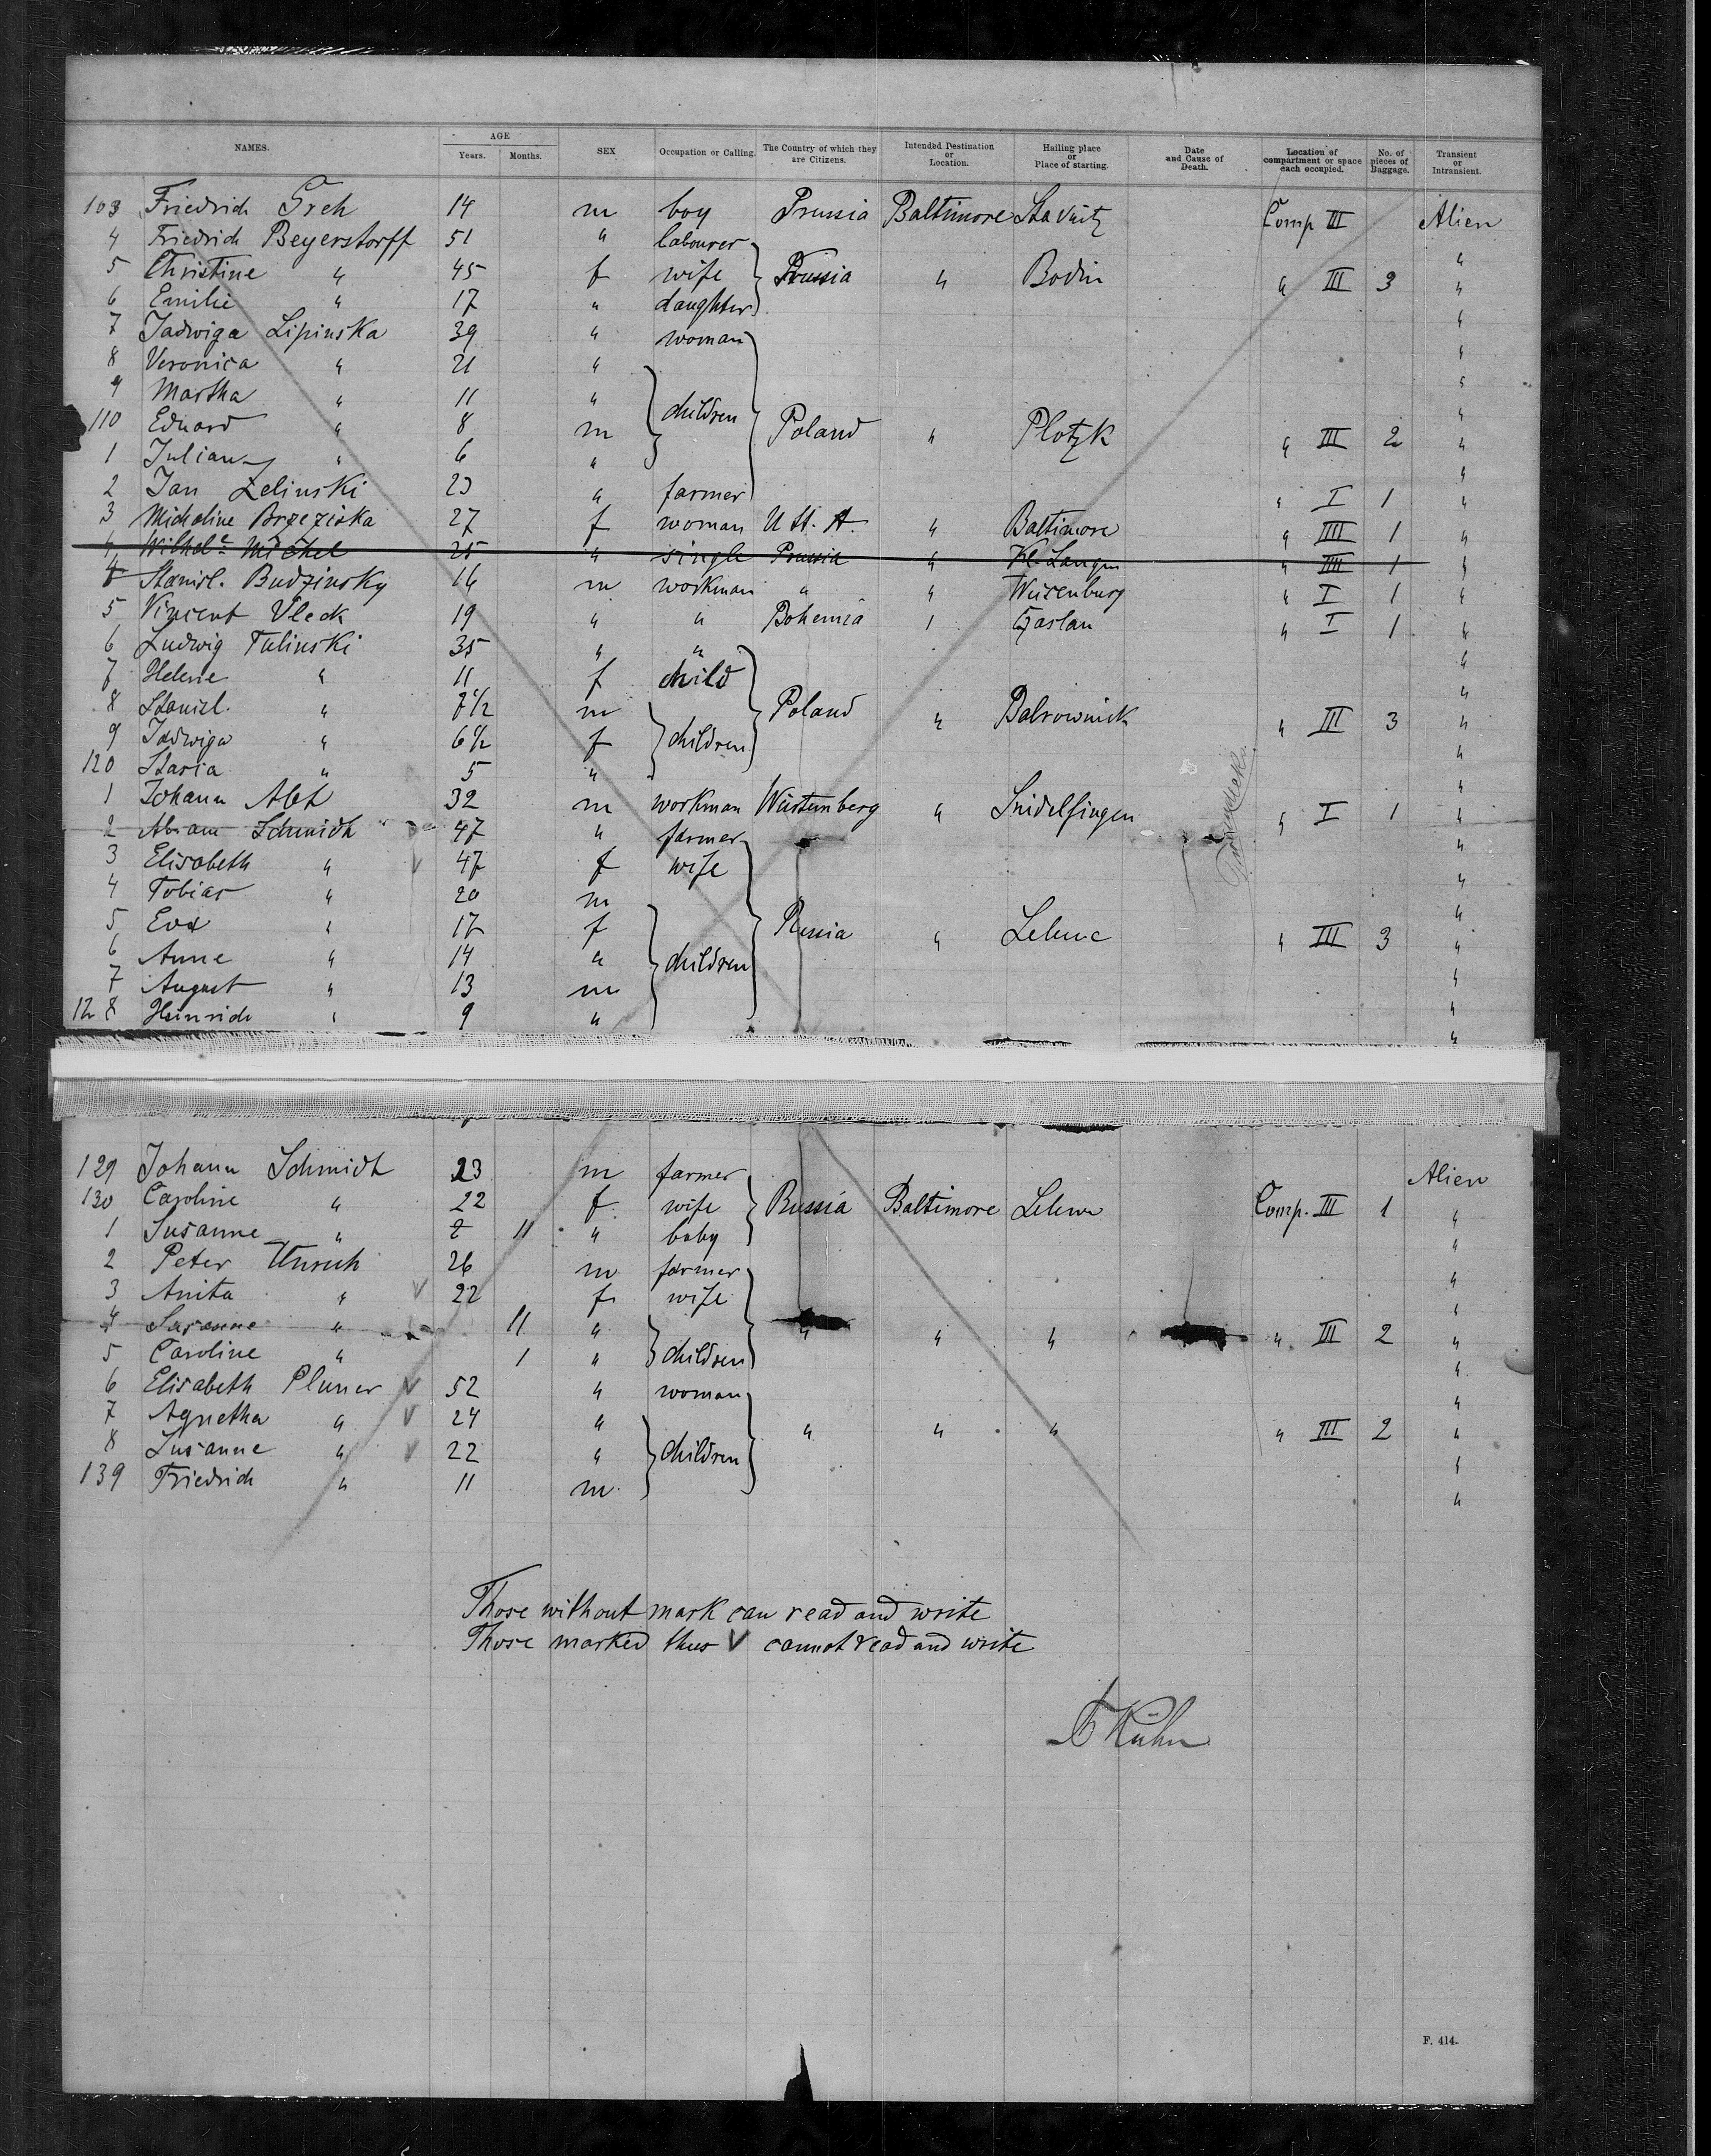 NAMES. AGE Years. Months. SEX Occupation or Calling. The Country of which they are Citizens. Intended Destination or Location. Hailing place or Place of starting. Date and Cause of Death. Location of compartment or space each occupied. No. of pieces of Baggage. Transient or Intransient.
103 Friedrich Greh 14 m boy Prussia Baltimore Comp III Alien
4 Friedrich Beyerstorff 51 " labourer "
5 Christine " 45 f wife Prussia " Bodin " III 3 "
6 Emilie " 17 " daughter "
7 Jadwiga Lipinska 39 " woman "
8 Veronica " 21 " "
9 Martha " 11 " children "
110 Eduard " 8 m Poland " Plotzk " III 2 "
1 Julian " 6 " "
2 Jan Zelinski 23 " farmer " I 1 "
3 Micholine Brzeziska 27 f woman U St. A. " Baltimore " IIII 1 "
4 Wilhel. Michel 25 " single Prussia " Kl. Langen " IIII 1 "
4 Stanisl. Budzinsky 16 m workman " " " I 1 "
5 Vincent Vleck 19 " " Bohemia " Czaslau " I 1 "
6 Ludwig Tulinski 35 " " "
7 Helene " 11 f child "
8 Stanisl. " 7 1/2 m Poland " " III 3 "
9 Jadwiga " 6 1/2 f children "
120 Stasia " 5 " "
1 Johann Abt 32 m workman Würtemberg " Sindelfingen " I 1 "
2 Abram Schmidt " 47 " farmer "
3 Elisabeth " V 47 f wife "
4 Tobias " 20 m "
5 Eva " 17 f Russia " " III 3 "
6 Anne " 14 " children "
7 August " 13 m "
128 Heinrich " 9 " "
129 Johann Schmidt 23 m farmer Alien
130 Caroline " 22 f wife Russia Baltimore Comp. III 1 "
1 Susanne " 11 " baby "
2 Peter Unruh 26 m farmer "
3 Anita " V 22 f wife "
4 Susanne " 11 " " " " " III 2 "
5 Caroline " 1 " children "
6 Elisabeth V 52 " woman "
7 Agnetha " V 24 " " " " " III 2 "
8 Susanne " V 22 " children "
139 Friedrich " 11 m "
Those without mark can read and write
Those marked thus V cannot read and write
Kühn
F. 414.